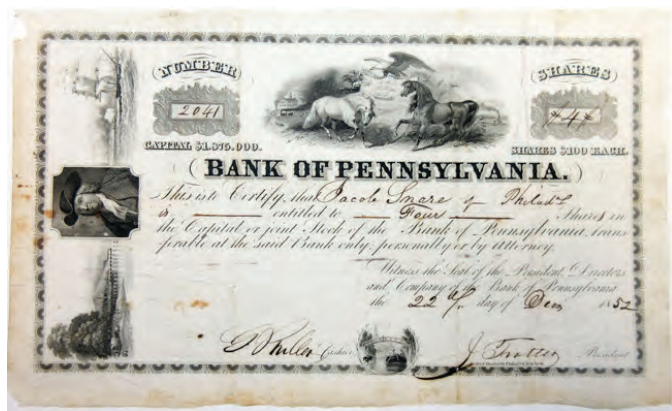 (NUMBER)
2041
CAPITAL $1.875.000.
(SHARES)
4
SHARES $100 EACH.
(BANK OF PENNSYLVANIA.)
This is to Certify, that Jacob Snare of Philad
is entitled to Four Shares in
the Capital or joint Stock of the Bank of Pennsylvania, trans
ferable at the said Bank only, personally or by Attorney.
Witness the Seal of the President, Directors
and Company of the Bank of Pennsylvania
the 22 d day of Dec 1852
Cashier J. Trotter President